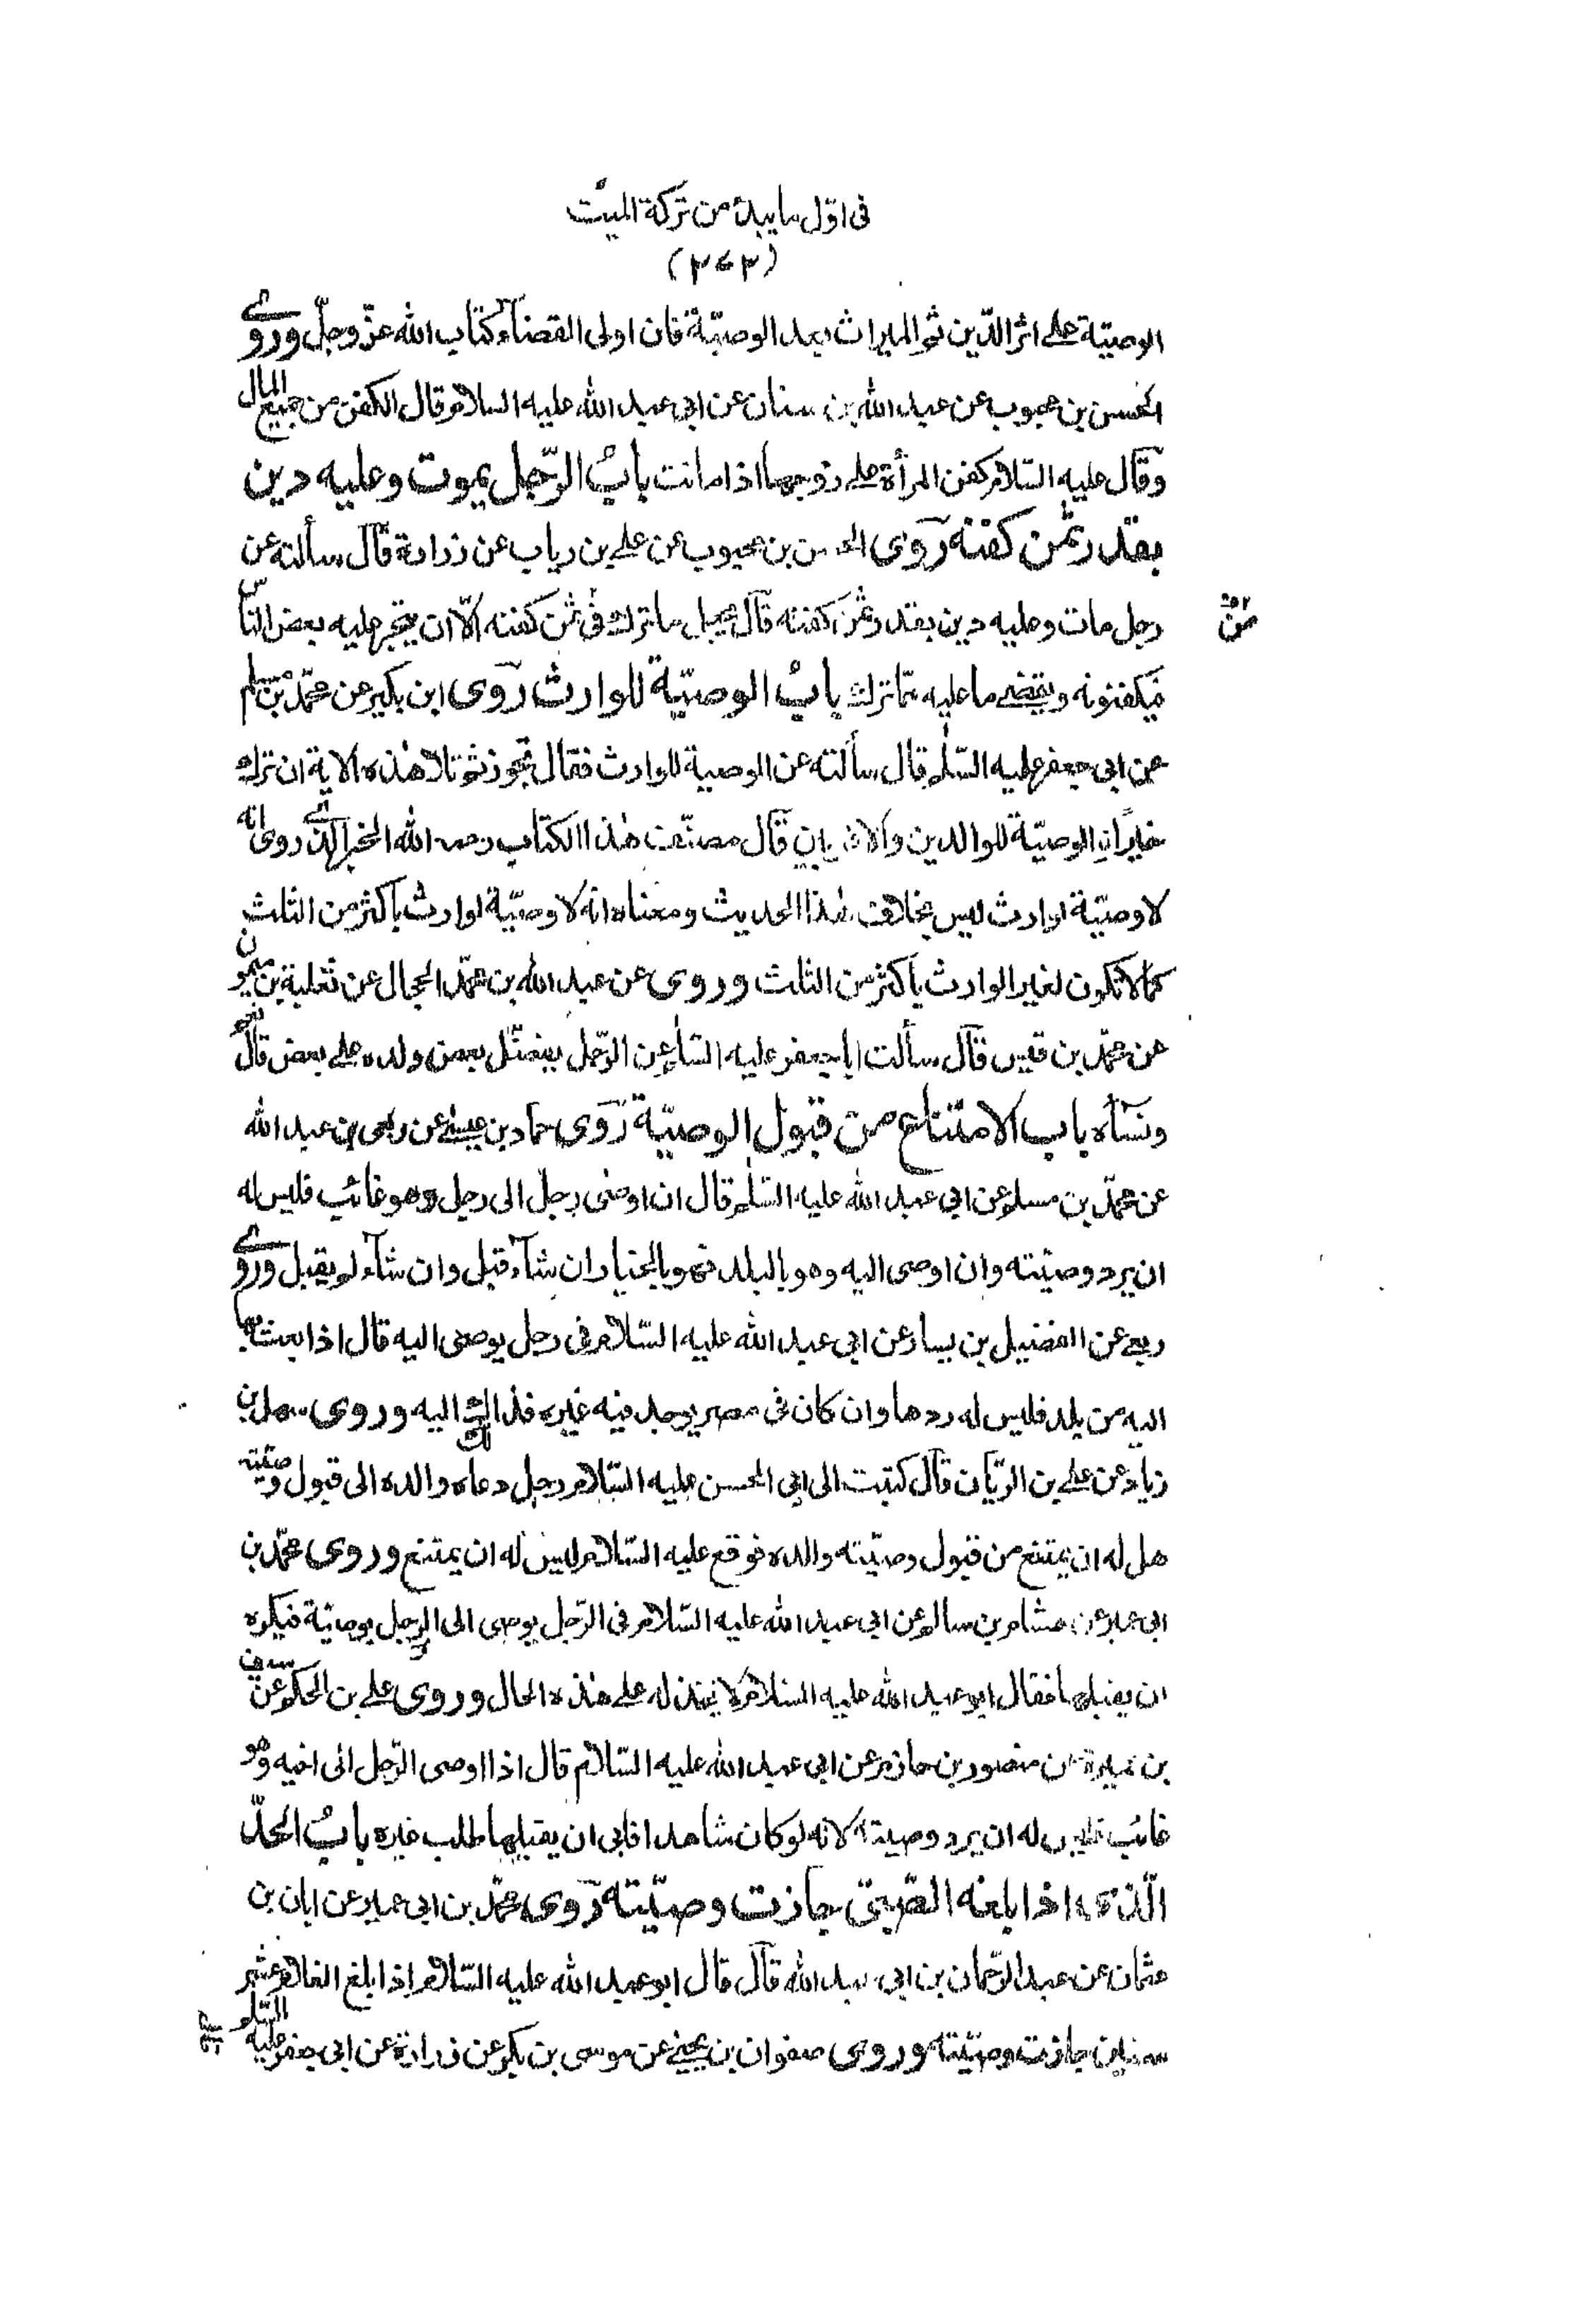 فى اوّل ما يبدأ من تركة الميّت
(٣٧٣)
الوصيّة على اثر الدّين ثم الميراث بعد الوصيّة فان اولى القضاء كتاب الله عزّ وجلّ وروى
الحسن بن محبوب عن عبد الله بن سنان عن ابى عبد الله عليه السلام قال الكفن من جميع المال
وقال عليه السّلام كفن المرأة على زوجها اذا ماتت بابُ الرّجل يموت وعليه دين
بقدر ثمن كفنه روى الحسن بن محبوب عن على بن رياب عن زرارة قال سألته عن
رجل مات وعليه دين بقدر ثمن كفنه قال يجعل ما ترك فى ثمن كفنه الّا ان يتجر عليه بعض النّاس
فيكفنونه ويقضى ما عليه ممّا ترك بابُ الوصيّة للوارث روى ابن بكير عن محمّد بن مسلم
عن ابى جعفر عليه السّلم قال سألته عن الوصية للوارث فقال تجوز ثم تلا هذه الاية ان ترك
خيرًا الوصيّة للوالدين والاقربين قال مصنّف هذا الكتاب رحمه الله الخبر الّذى روى انه
لا وصيّة لوارث ليس بخلاف هذا الحديث ومعناه انه لا وصيّة لوارث باكثر من الثلث
كما لا تكون لغير الوارث باكثر من الثلث وروى عن عبد الله بن محمّد الحجال عن ثعلبة بن ميمون
عن محمّد بن قيس قال سألت ابا جعفر عليه السّلم عن الرّجل يفضّل بعض ولده على بعض قال نعم
ونسآءه باب الامتناع من قبول الوصيّة روى حمّاد بن عيسى عن ربعى بن عبد الله
عن محمّد بن مسلم عن ابى عبد الله عليه السّلم قال ان اوصى رجل الى رجل وهو غائب فليس له
ان يرد وصيّته وان اوصى اليه وهو بالبلد فهو بالخيار ان شآء قبل وان شآء لم يقبل وروى
ربعى عن الفضيل بن يسار عن ابى عبد الله عليه السّلام فى رجل يوصى اليه قال اذا بعث بها
اليه من بلد فليس له ردها وان كان فى مصر يوجد فيه غيره فذلك اليه وروى سهل بن
زياد عن على بن الريّان قال كتبت الى ابى الحسن عليه السّلام رجل دعاه والده الى قبول وصيّته
هل له ان يمتنع من قبول وصيّته والده فوقع عليه السّلام ليس له ان يمتنع وروى محمّد بن
ابى عمير عن هشام بن سالم عن ابى عبد الله عليه السّلام فى الرّجل يوصى الى الرجل بوصيّة فيكره
ان يقبلها فقال ابو عبد الله عليه السّلام لا يخذله على هذه الحال وروى على بن الحكم عن سيف
بن عميرة عن منصور بن حازم عن ابى عبد الله عليه السّلام قال اذا اوصى الرّجل الى اخيه وهو
غائب فليس له ان يرد وصيته لانه لو كان شاهدا فابى ان يقبلها طلب غيره بابُ الحدّ
الّذى اذا بلغه الصّبىّ جازت وصيّته روى محمّد بن ابى عمير عن ابان بن
عثمان عن عبد الرّحمان بن ابى عبد الله قال قال ابو عبد الله عليه السّلام اذا بلغ الغلام عشر
سنين جازت وصيّته وروى صفوان بن يحيى عن موسى بن بكر عن زرارة عن ابى جعفر عليه السّلم